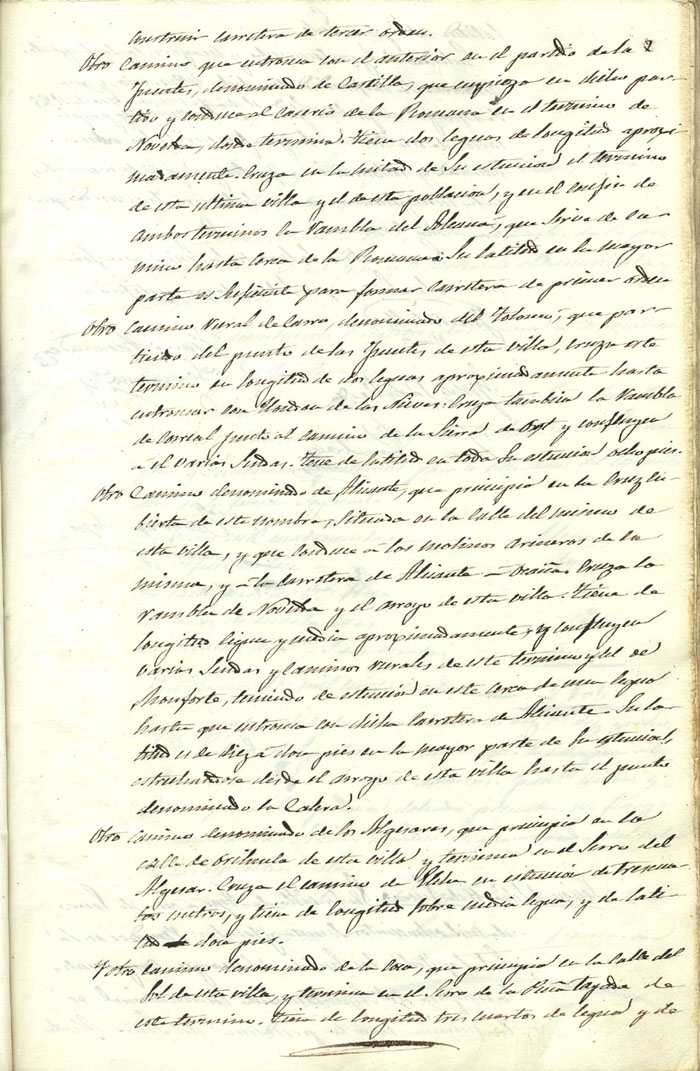 construir carretera de tercer orden.
Otro Camino que entronca con el anterior en el partido de las 2
Fuentes, denominado de Castilla, que empieza en dicho par-
tido y conduce al Caserio de la Romana en el termino de
Novelda, donde termina. Tiene dos leguas de longitud aproxi-
madamente. Cruza en la mitad de su estencion el termino
de esta ultima villa y el de esta poblacion, y en el confin de
ambos terminos la Rambla del que sirve de ca-
mino hasta cerca de la Romana. Su latitud en la mayor
parte es suficiente para formar carretera de primer orden
Otro Camino rural de carro, denominado del que par-
tiendo del punto de las Fuentes, de esta villa, cruza este
termino en longitud de dos leguas aproximadamente hasta
entroncar con de las Nieves. Cruza tambien la Rambla
de junto al camino de la Sierra de y confluyen
á él varias sendas. Tiene de latitud en toda su estencion ocho pies.
Otro Camino denominado de Alicante, que principia en la Cruz cu-
bierta de este nombre, situada en la Calle del mismo de
esta villa, y que conduce á los molinos arineros de la
misma, y á la carretera de Alicante á Ocaña. Cruza la
rambla de Novelda y el arroyo de esta villa. Tiene de
longitud legua y media aproximadamente, y confluyen
varias sendas y caminos rurales de este termino y del de
Monforte, teniendo de estencion en este cerca de una legua
hasta que entronca con dicha carretera de Alicante. Su la-
titud es de diez á doce pies en la mayor parte de su estencion,
estrechandose desde el arroyo de esta villa hasta el punto
denominado la Calera.
Otro Camino denominado de los Algesares, que principia en la
calle de Orihuela de esta villa y termina en el Serro del
Algesar. Cruza el camino de Elche en estencion de trescien-
tos metros, y tiene de longitud sobre media legua, y de lati-
tud doce pies.
Y otro Camino denominado de la Coca, que principia en la Calle del
Sol de esta villa, y termina en el Serro de la Tajada de
este termino. Tiene de longitud tres cuartos de legua y de